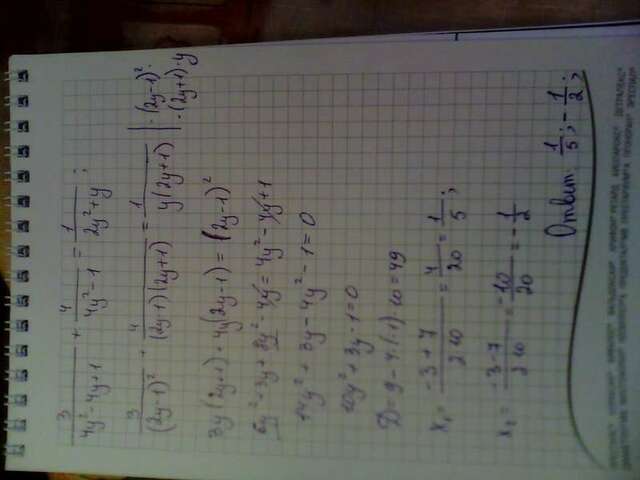 3/(4y²-4y+1) + 4/(4y²-1) = 1/(2y²+y);
3/(2y-1)² + 4/((2y-1)(2y+1)) = 1/(y(2y+1)) | ·(2y-1)²·(2y+1)·y
3y(2y+1) + 4y(2y-1) = (2y-1)²
6y²+3y+8y²-4y = 4y²-4y+1
14y²+3y-4y²-1=0
10y²+3y-1=0
D = 9-4·(-1)·10 = 49
x₁ = (-3+7)/(2·10) = 4/20 = 1/5;
x₂ = (-3-7)/(2·10) = -10/20 = -1/2
Ответ: 1/5; -1/2;